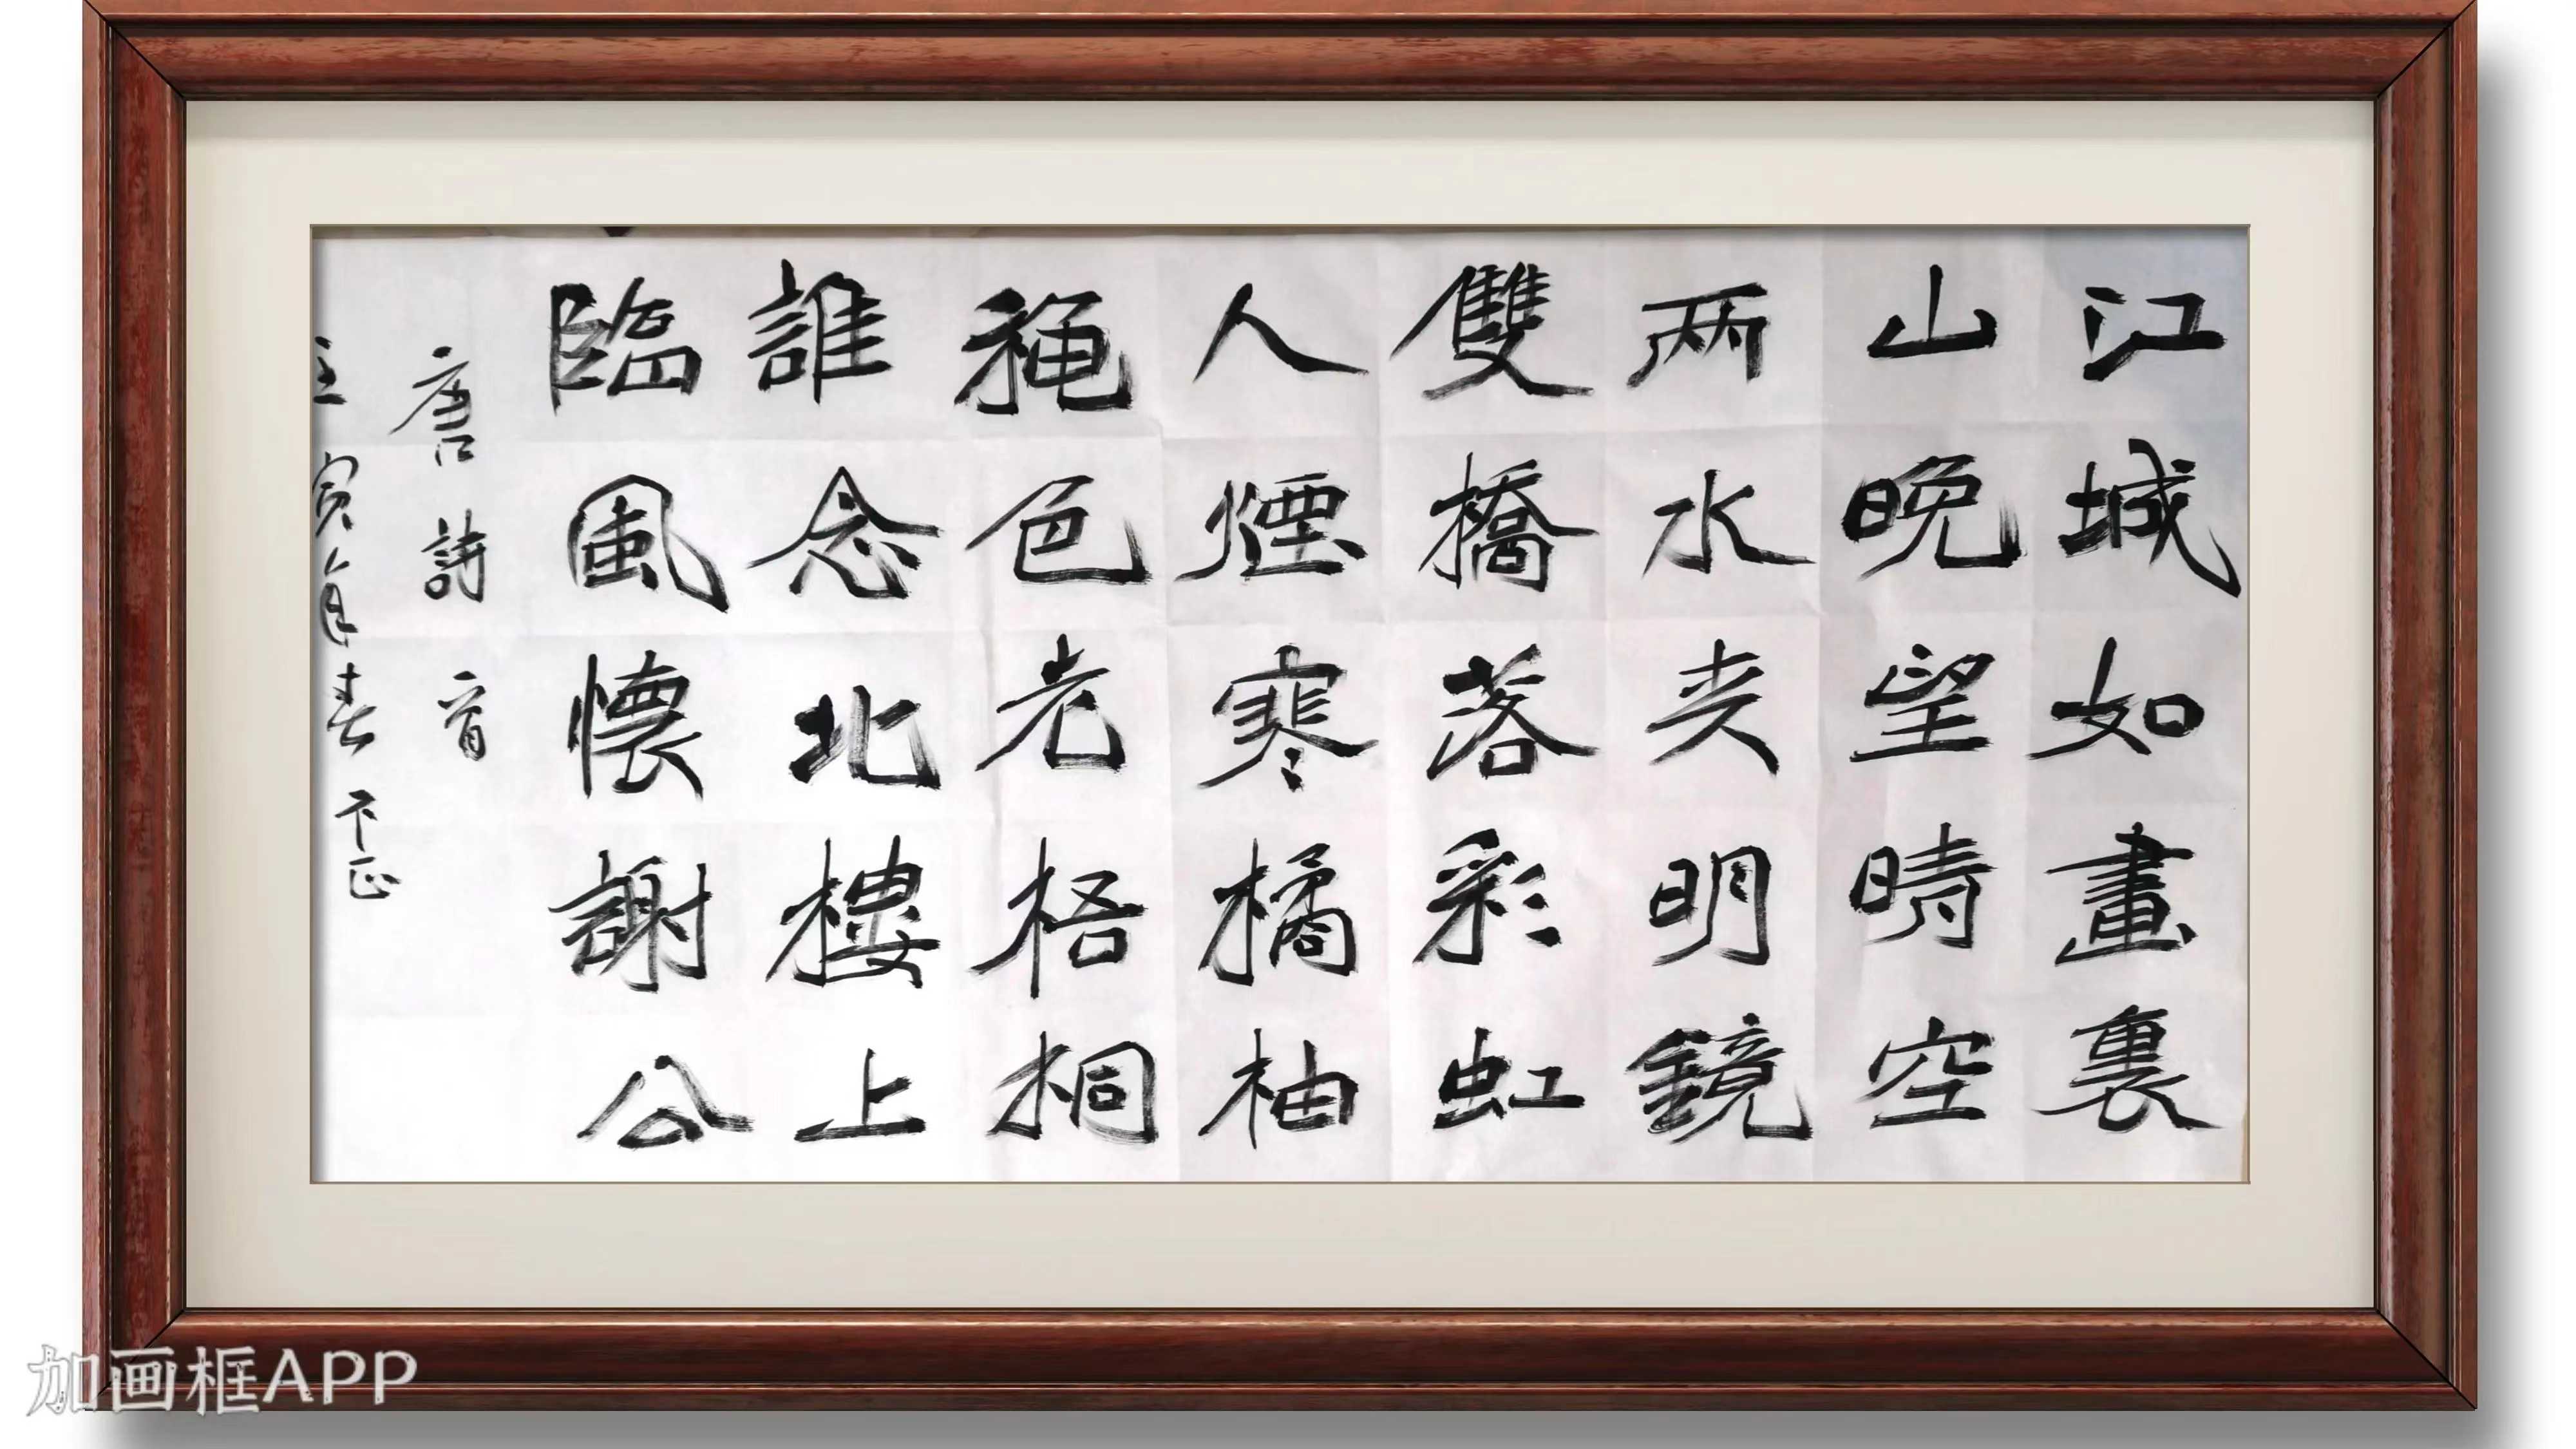 江城如畫裏
山晚望晴空
兩水夹明鏡
雙橋落彩虹
人煙寒橘柚
秞色老梧桐
誰念北樓上
臨風懷謝公
唐詩一首
壬寅年春 卞正
加画框APP